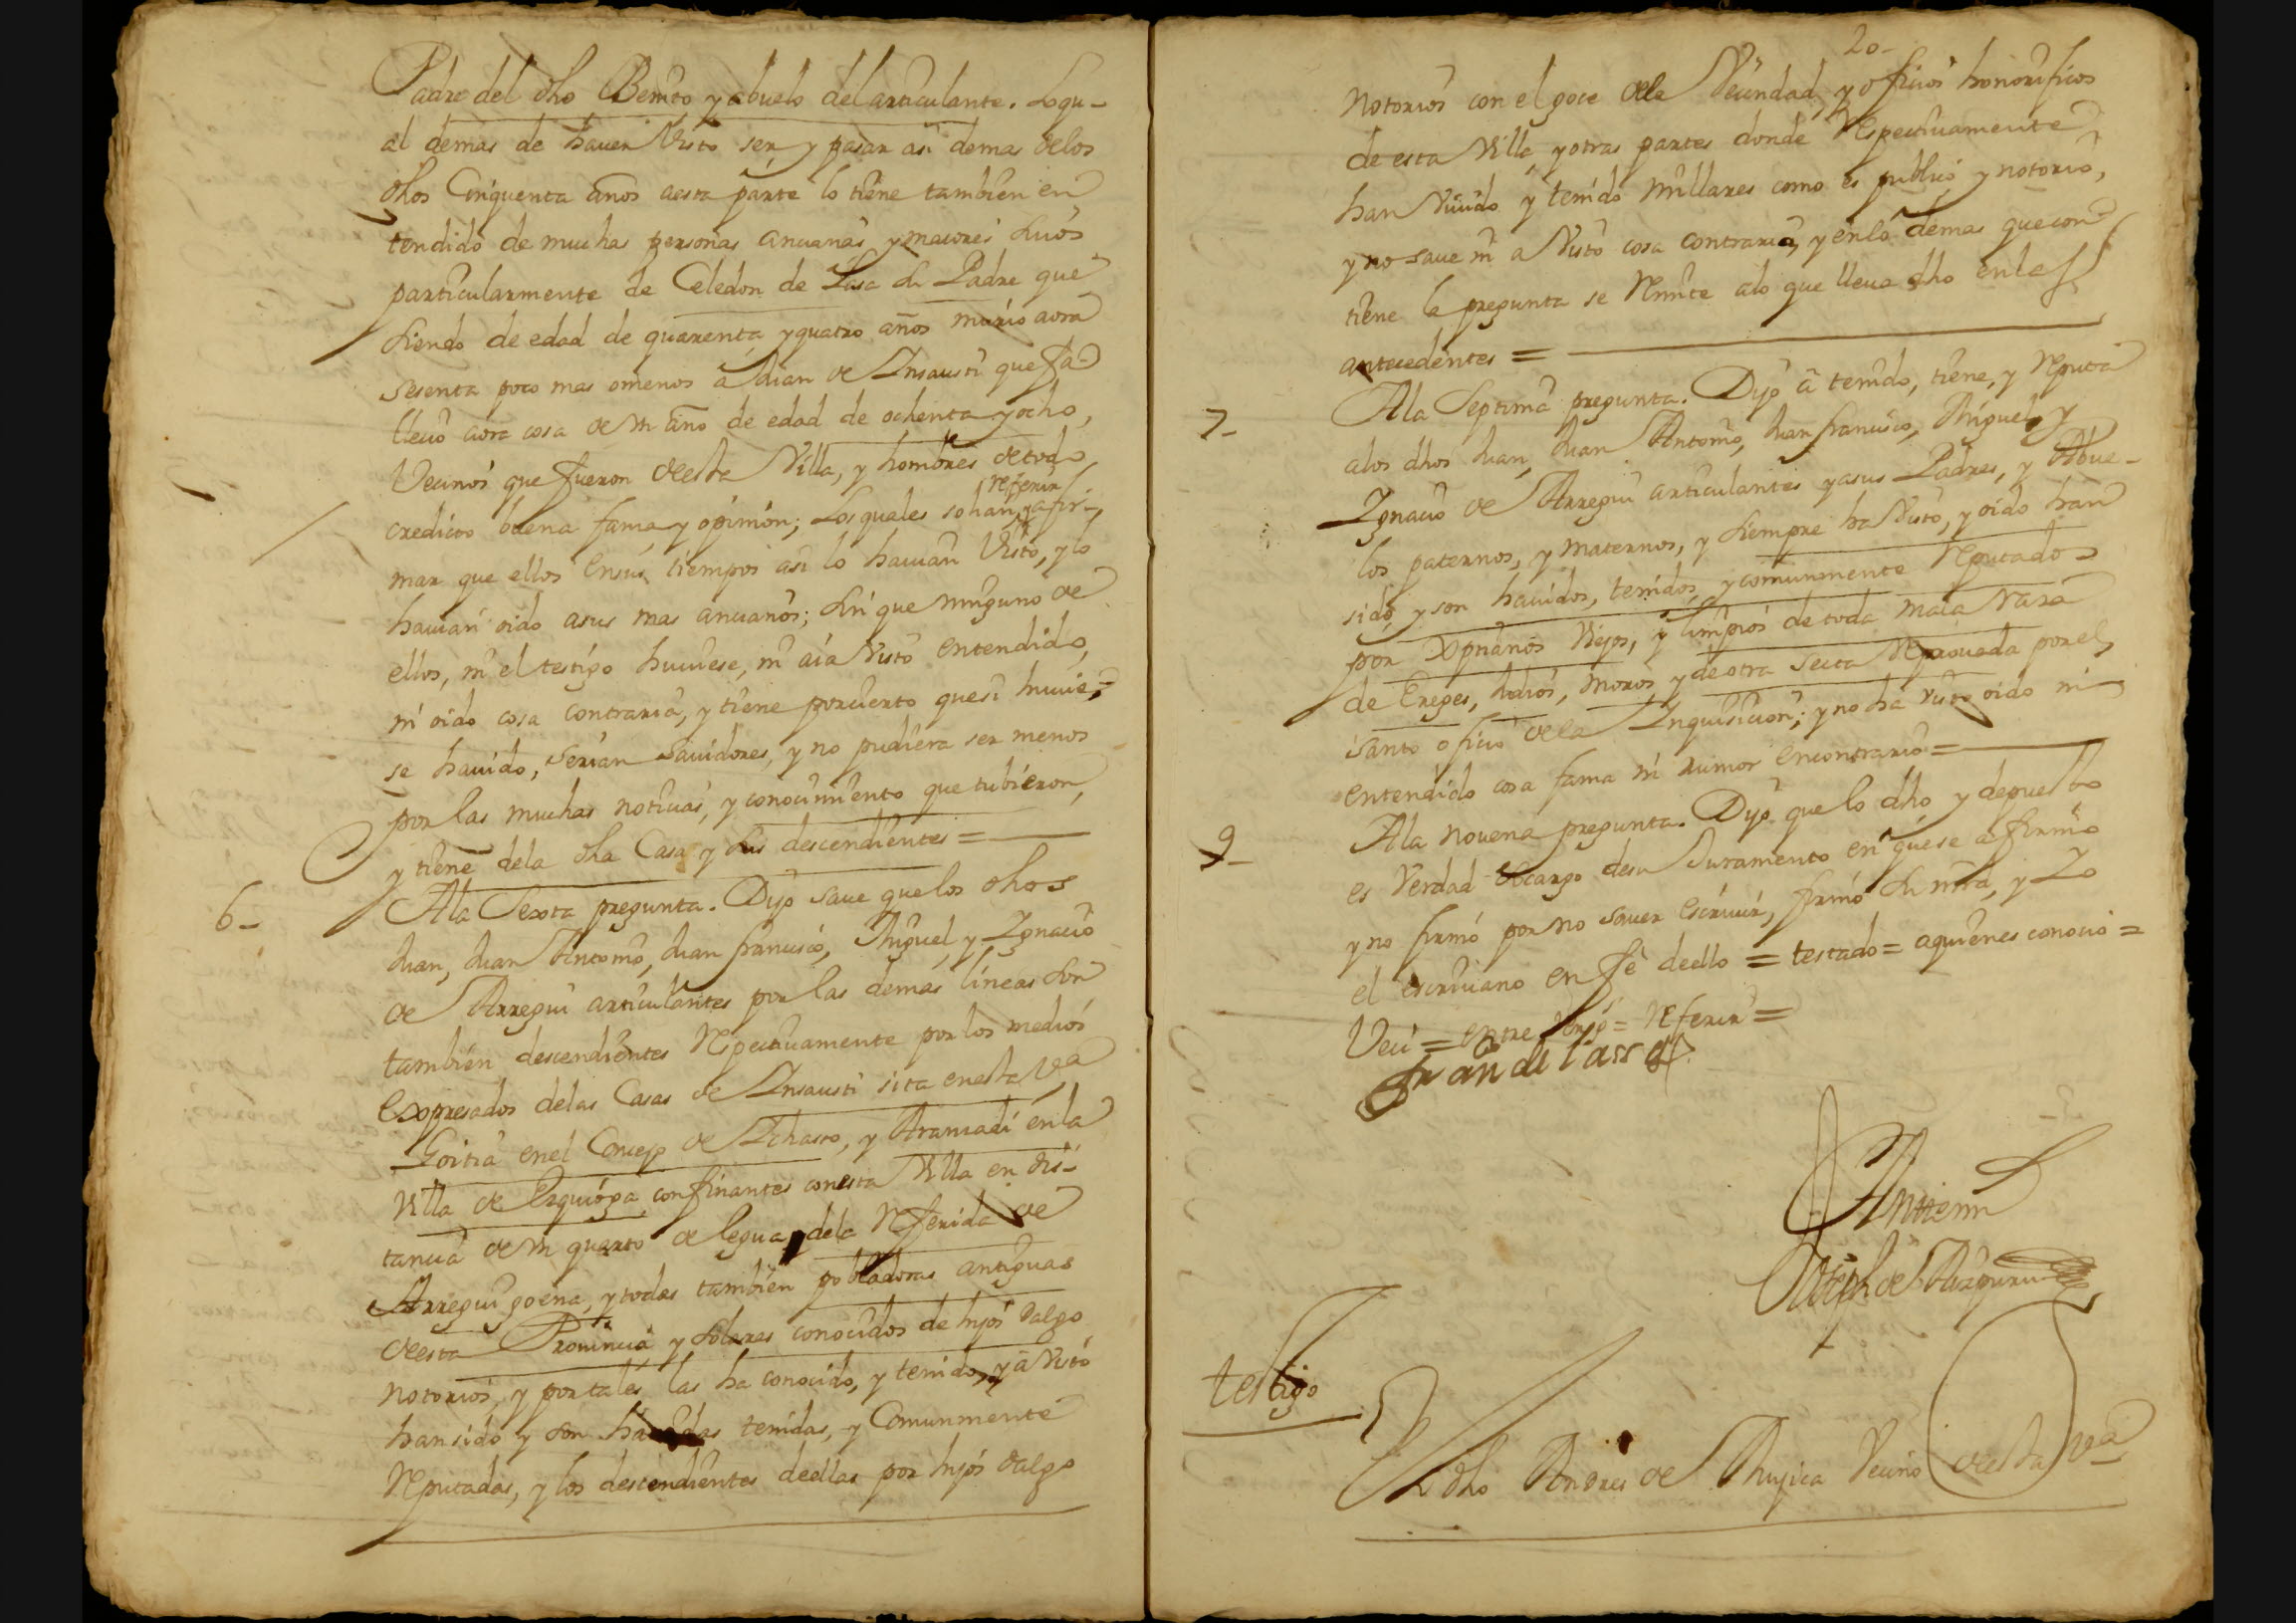 Padre del dho Benito y abuelo del articulante. Loqu-
al demas de hauer Visto ser y pasar asi demas delos
dhos Cinquenta años aesta parte lo tiene tambien en
tendido de muchas personas ancianas y maiores suios
particularmente de Celedon de Lasa su Padre que
siendo de edad de quarenta y quatro años murio aora
sesenta poco mas omenos a Juan de Insausti que fa
llecio aora cosa de Vn año de edad de ochenta y ocho,
Vecinos que fueron deesta Villa, y hombres de todo
referir
credito buena fama y opinion; Los quales solian y afir-
mar que ellos Ensus tiempos asi lo hauian Visto, y lo
hauian oido asus mas ancianos; sin que ninguno de
ellos, ni el testigo huuiese, ni aia Visto entendido,
ni oido cosa contraria, y tiene porcierto quesi huuie-
se hauido, serian sauidores, y no pudiera ser menos
por las muchas noticias, y conocimiento que tubieron,
y tiene dela dha Casa y sus descendientes =
6- Ala Sexta pregunta. Dijo saue que los dhos
Juan, Juan Antonio, Juan francisco, Miguel, y Ignacio
de Arregui articulantes por las demas lineas son
tambien descendientes Respectiuamente por los medios
Expresados delas Casas de Insausti sita enesta Va
Goitia enel Concejo de Ichaso, y Aramadi enla
Villa de Ezquioga confinantes conesta Villa en dis-
tancia de Vn quarto de legua dela Referida de
Arreguigoena, y todas tambien pobladoras antiguas
deesta Prouincia y solares conocidos de hijos dalgo
notorios, y portales las ha conocido, y tenido, y a Visto
han sido y son hauidas tenidas, y Comunmente
Reputadas, y los descendientes deellas por hijos dalgo
20-
Notorios con el goce dela Vecindad, y oficios honorificos
de esta Villa, y otras partes donde Respectiuamente
han Viuido y tenido Millares como es publico y notorio,
y no saue ni a Visto cosa contraria, y enlo demas que con
tiene la pregunta se Rimite alo que lleua dho enlas
antecedentes =
7- Ala Septima pregunta. Dijo a tenido, tiene, y Reputa
alos dhos Juan, Juan Antonio, Juan francisco, Miguel, y
Ignacio de Arregui articulantes y asus Padres, y Abue-
los paternos, y maternos, y siempre ha Visto, y oido han
sido, y son hauidos, tenidos, y comunmente Reputados
por Xpnanos Viejos, y limpios de toda mala raza
de Ereges, Judios, Moros, y de otra secta Reprouada por el
Santo oficio dela Inquisicion; y no ha visto oido ni
entendido cosa fama ni rumor encontrario =
9- Ala nouena pregunta. Dijo que lo dho, y depuesto
es Verdad socargo desu Juramento en que se afirmo
y no firmó por no sauer escriuir, firmó su mrd, y Yo
el escriuano en fe deello = testado = aquienes conocio =
Veci = entre Rengs = Referir =
Juan de lassa
Antemi
Joseph de Aizpuru
testigo
El dho Andres de Mujica Vecino deesta Va